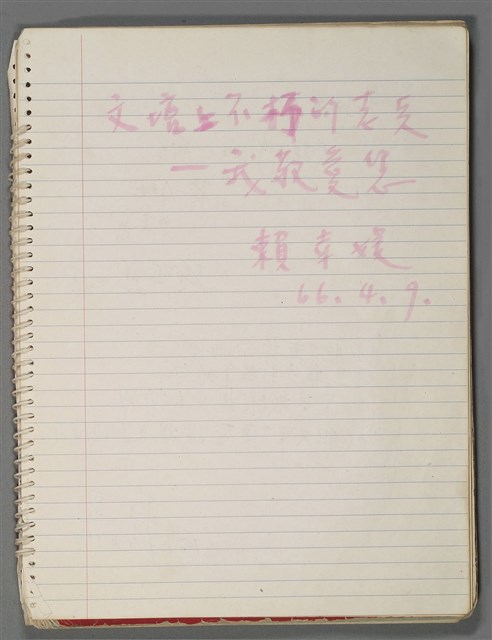 文壇上不朽的老兵
一我敬愛您
賴幸媛
66.4.9.